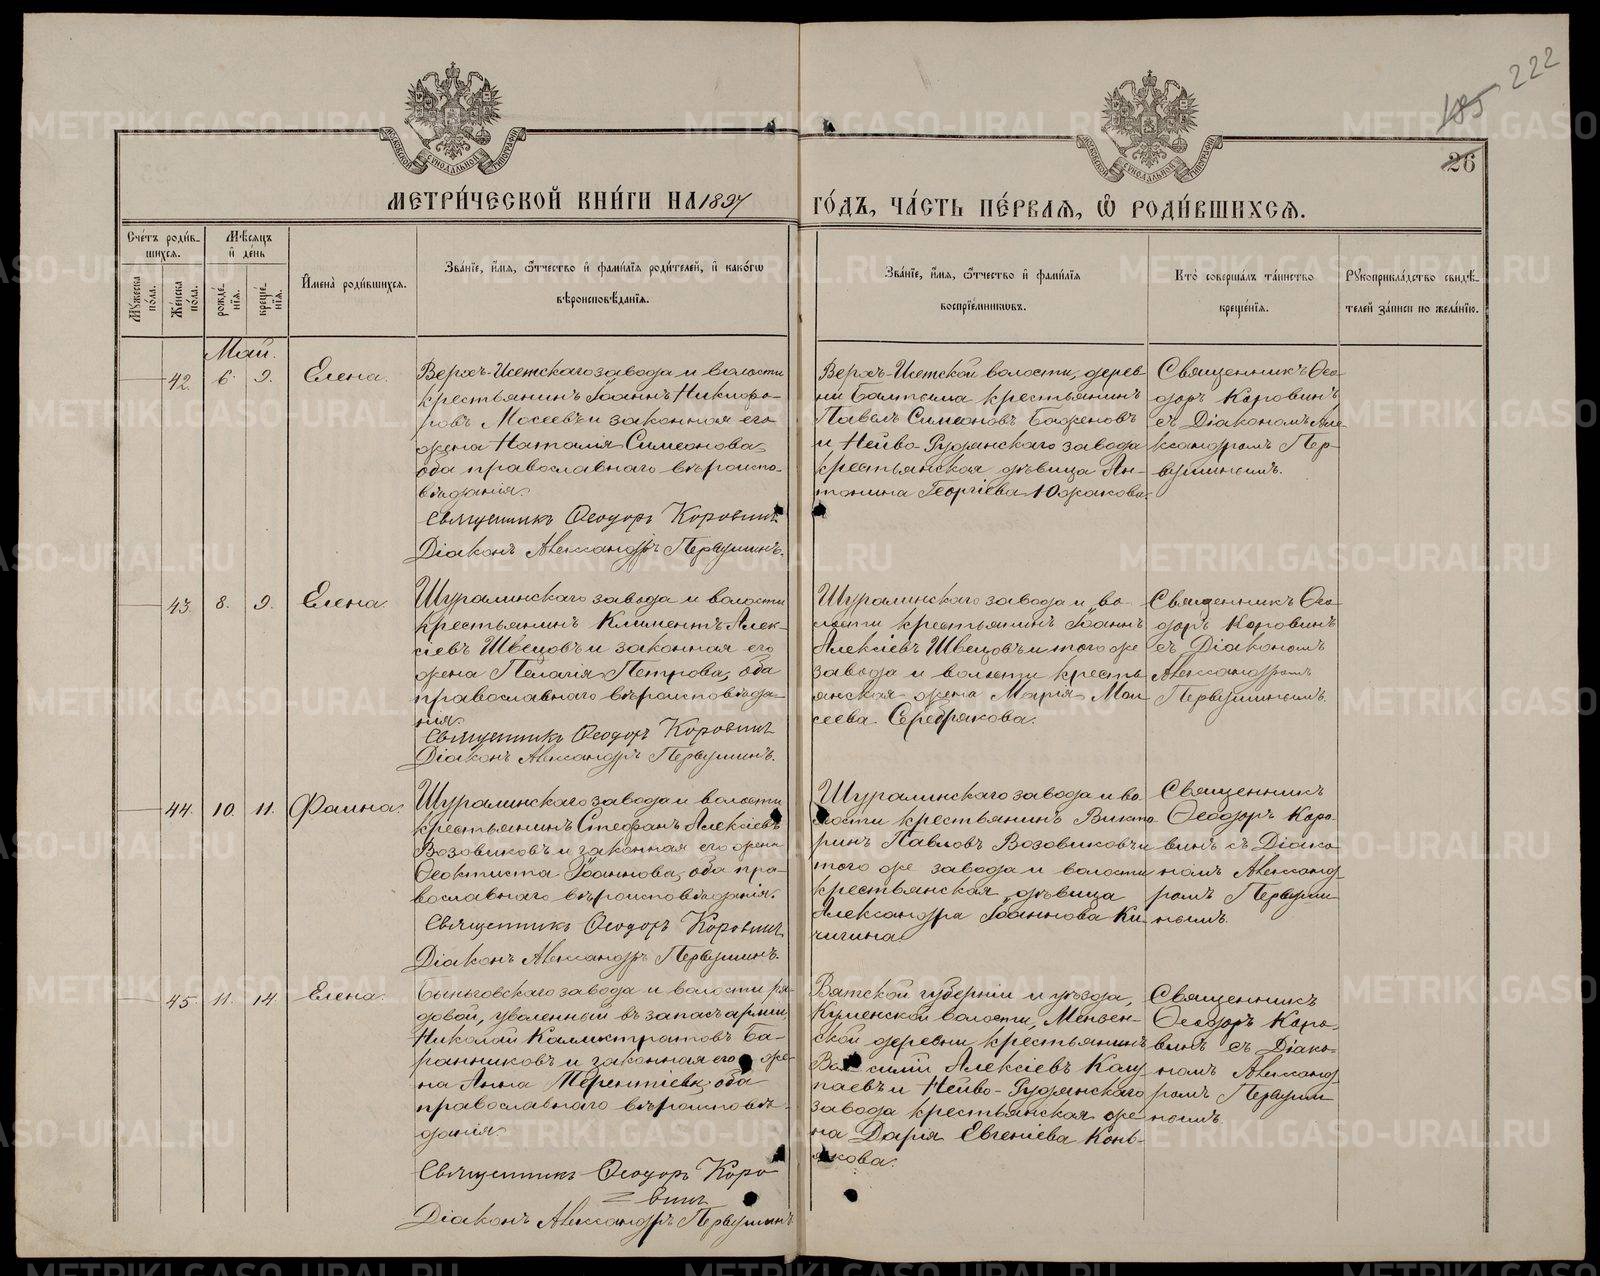 222
185
26
МОСКОВСКОЙ СѴНОДАЛЬНОЙ ТИПОГРАФІИ
МОСКОВСКОЙ СѴНОДАЛЬНОЙ ТИПОГРАФІИ
МЕТРИ́ЧЕСКОЙ КНИ́ГИ НА 1897
ГО́ДЪ, ЧА́СТЬ ПЕ́РВАЯ, Ѽ РОДИ́ВШИХСЯ.
Сче́тъ роди́в-
шихся.
Мѣ́сяцъ
и҆ де́нь
Мꙋ́жеска
по́ла.
Же́нска
по́ла.
рожде́-
нїя.
креще́-
нїя.
И҆мена̀ роди́вшихся.
Зва́нїе, и҆́мя, ѻ҆́тчество и҆ фами́лїя роди́телей, и҆ како́гѡ
вѣроисповѣ́данїя.
Зва́нїе, и҆́мя, ѻ҆́тчество и҆ фами́лїя
воспрїе́мникѡвъ.
Кто̀ соверша́лъ та́инство
креще́нїя.
Рꙋкоприкла́дство свидѣ́-
телей за́писи по жела́нїю.
Май.
42. 6. 9. Елена.
Верхъ-Исетскаго завода и волости
крестьянинъ Іоаннъ Никифо-
ровъ Мосеевъ и законная его
жена Наталія Симеонова,
оба православнаго вѣроиспо-
вѣданія.
Священникъ Ѳеодоръ Коровинъ
Діаконъ Александръ Первушинъ.
Верхъ-Исетской волости, дерев-
ни Балтыма крестьянинъ
Павелъ Симеоновъ Баженовъ
и Нейво-Рудянскаго завода
крестьянская дѣвица Ан-
тонина Георгіева Южакова.
Священникъ Ѳео-
доръ Коровинъ
съ Діакономъ Але-
ксандромъ Пер-
вушинымъ.
43. 8. 9. Елена.
Шуралинскаго завода и волости
крестьянинъ Климентъ Алек-
сіевъ Швецовъ и законная его
жена Пелагія Петрова, оба
православнаго вѣроисповѣда-
нія.
Священникъ Ѳеодоръ Коровинъ
Діаконъ Александръ Первушинъ.
Шуралинскаго завода и во-
лости крестьянинъ Іоаннъ
Алексіевъ Швецовъ и того же
завода и волости кресть-
янская жена Марія Мои-
сеева Серебрякова.
Священникъ Ѳео-
доръ Коровинъ
съ Діакономъ
Александромъ
Первушинымъ.
44. 10. 11. Фаина.
Шуралинскаго завода и волости
крестьянинъ Стефанъ Алексіевъ
Возовиковъ и законная его жена
Ѳеоктиста Іоаннова, оба пра-
вославнаго вѣроисповѣданія.
Священникъ Ѳеодоръ Коровинъ
Діаконъ Александръ Первушинъ.
Шуралинскаго завода и во-
лости крестьянинъ Викто-
ринъ Павловъ Возовиковъ и
того же завода и волости
крестьянская дѣвица
Александра Іоаннова Ки-
чигина.
Священникъ
Ѳеодоръ Коро-
винъ съ Діако-
номъ Александ-
ромъ Первуши-
нымъ.
45. 11. 14. Елена.
Быньговскаго завода и волости ря-
довой, уволенный въ запасъ арміи,
Николай Каллистратовъ Ба-
ранниковъ и законная его же-
на Анна Терентіева, оба
православнаго вѣроисповѣ-
данія.
Священникъ Ѳеодоръ Коро-
винъ
Діаконъ Александръ Первушинъ
Вятской губерніи и уѣзда,
Куменской волости, Мензен-
ской деревни крестьянинъ
Вассилій Алексіевъ
и Нейво-Рудянскаго
завода крестьянская же-
на Дарія Евгеніева Конь-
якова.
Священникъ
Ѳеодоръ Коро-
винъ съ Діако-
номъ Александ-
ромъ Первуши-
нымъ.